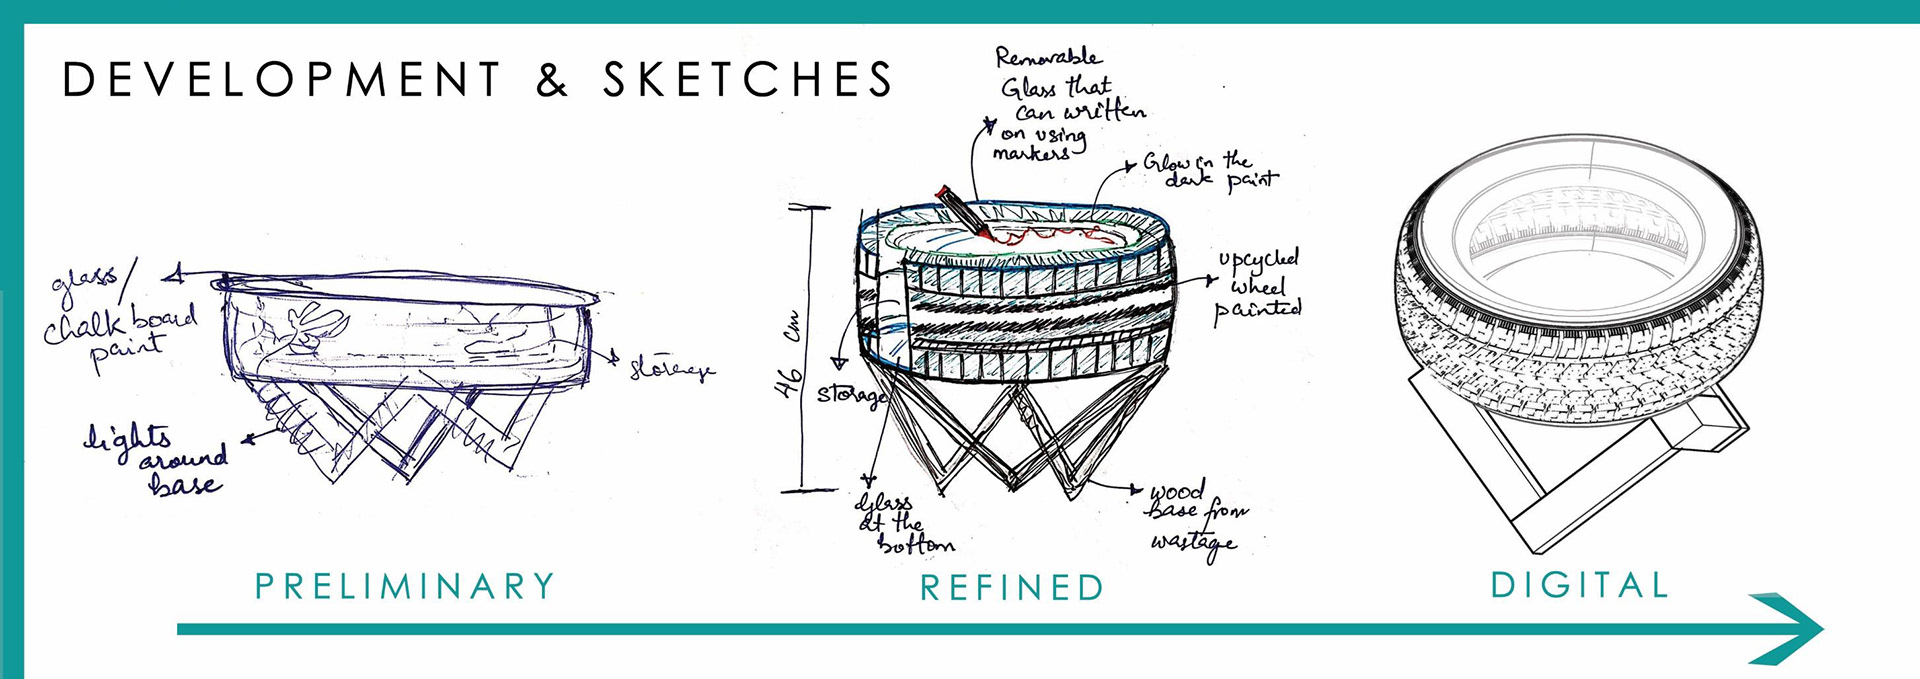 DEVELOPMENT & SKETCHES
glass/
chalk board
paint
storage
lights
around
base
PRELIMINARY
Removable
Glass that
can written
on using
markers
Glow in the
dark paint
upcycled
wheel
painted
46 cm
storage
glass
at the
bottom
wood
base from
wastage
REFINED
DIGITAL